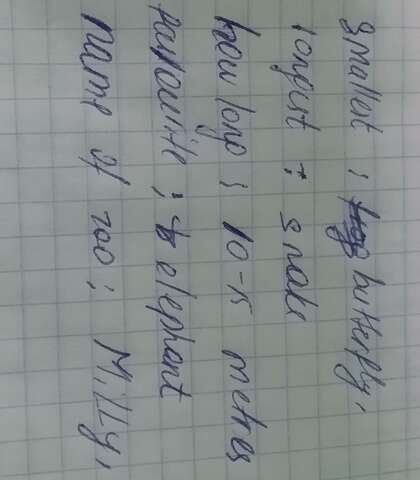 smallest : butterfly,
longest : snake
how long : 10-15 metres
favourite : elephant
name of zoo : Milly,